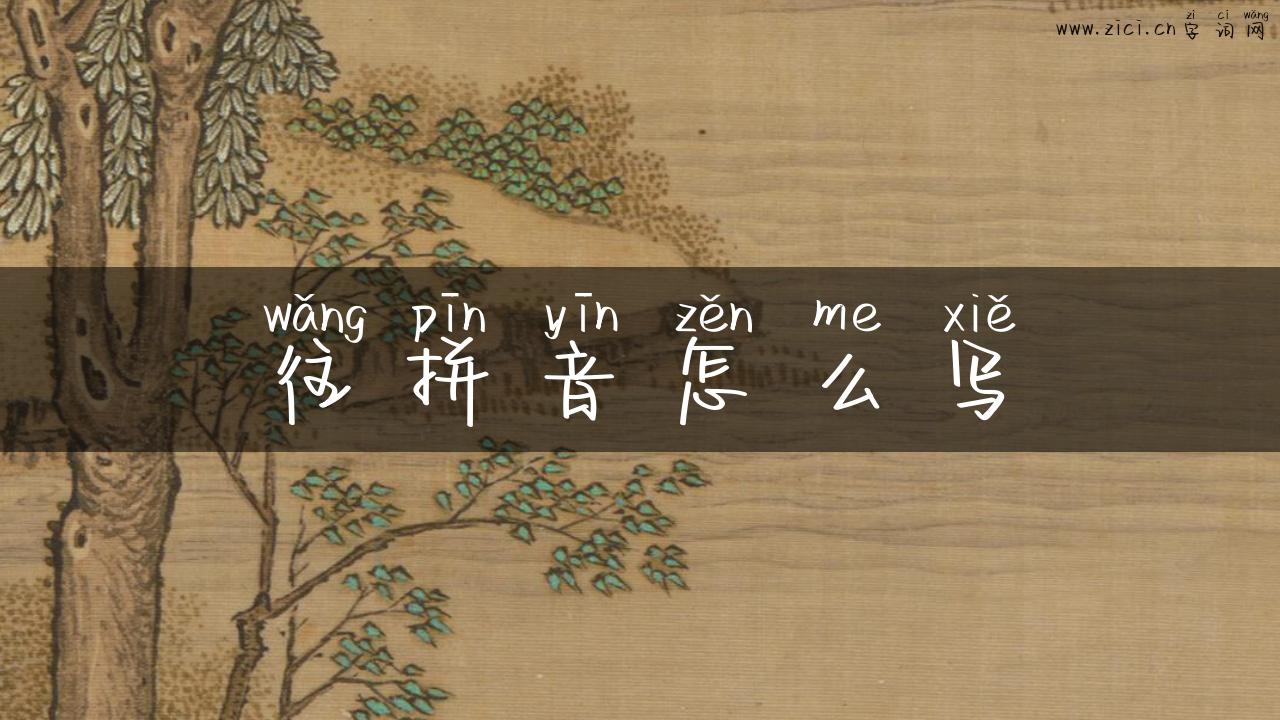 zì cí wǎng
www.zici.cn 字词网
wǎng pīn yīn zěn me xiě
往拼音怎么写